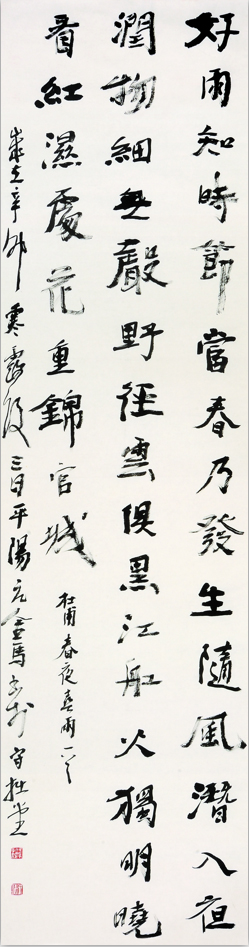 好雨知時節當春乃發生隨風潛入夜
潤物細無聲野徑雲俱黑江船火獨明曉
看紅濕處花重錦官城
杜甫春夜喜雨一首
歲在辛卯寒露後三日平陽元金馬書於守拙堂